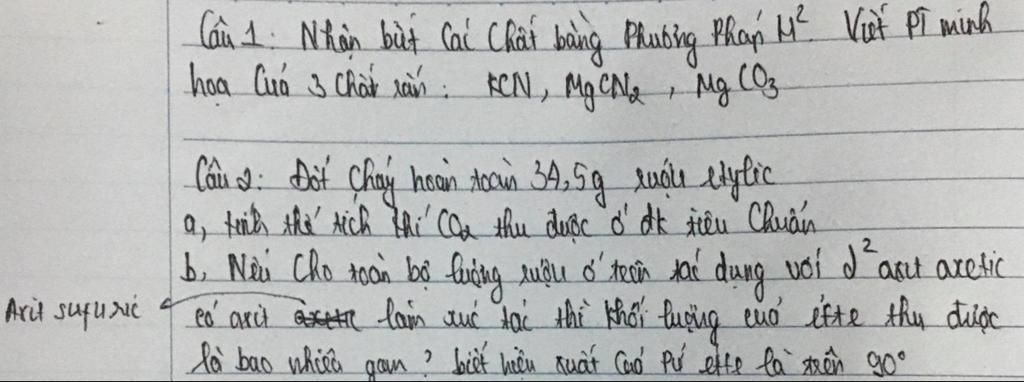 Câu 1: Nhận biết các chất bằng phương pháp H². Viết PT minh
hoạ của 3 chất rắn: KCN, MgCN₂, MgCO₃
Câu 2: Đốt cháy hoàn toàn 34,5g rượu etylic
a, tính thể tích khí CO₂ thu được ở đk tiêu chuẩn
b, Nếu cho toàn bộ lượng rượu ở trên tác dụng với d² axit axetic
Axit sufuric có axit làm xúc tác thì khối lượng của este thu được
là bao nhiêu gam? biết hiệu xuất của PƯ este là trên 90°